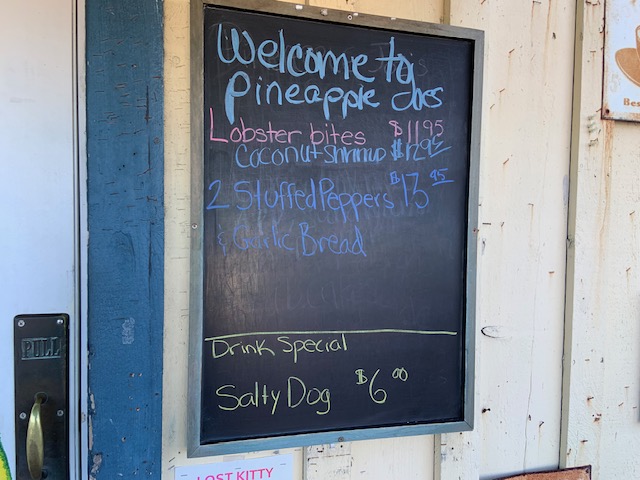 Welcome to
Pineapple Joes
Lobster bites $11.95
Coconut shrimp $12.95
2 Stuffed Peppers $13.95
& Garlic Bread
Drink Special
Salty Dog $6.00
PULL
LOST KITTY
Bes